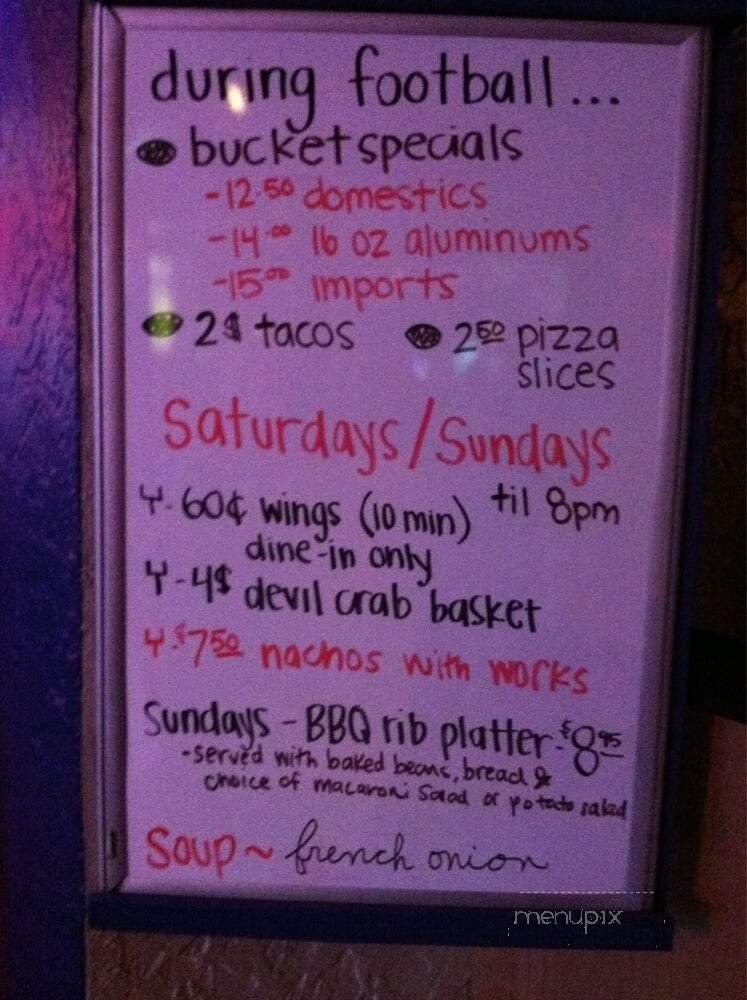 during football...
bucket specials
-12.50 domestics
-14.00 16 oz aluminums
-15.00 imports
2$ tacos
2 50 pizza slices
Saturdays/Sundays
til 8pm
60¢ wings (10 min)
dine-in only
4$ devil crab basket
$7 50 nachos with works
Sundays - BBQ rib platter - $8 95
-served with baked beans, bread &
choice of macaroni salad or potato salad
Soup ~ french onion
menupix